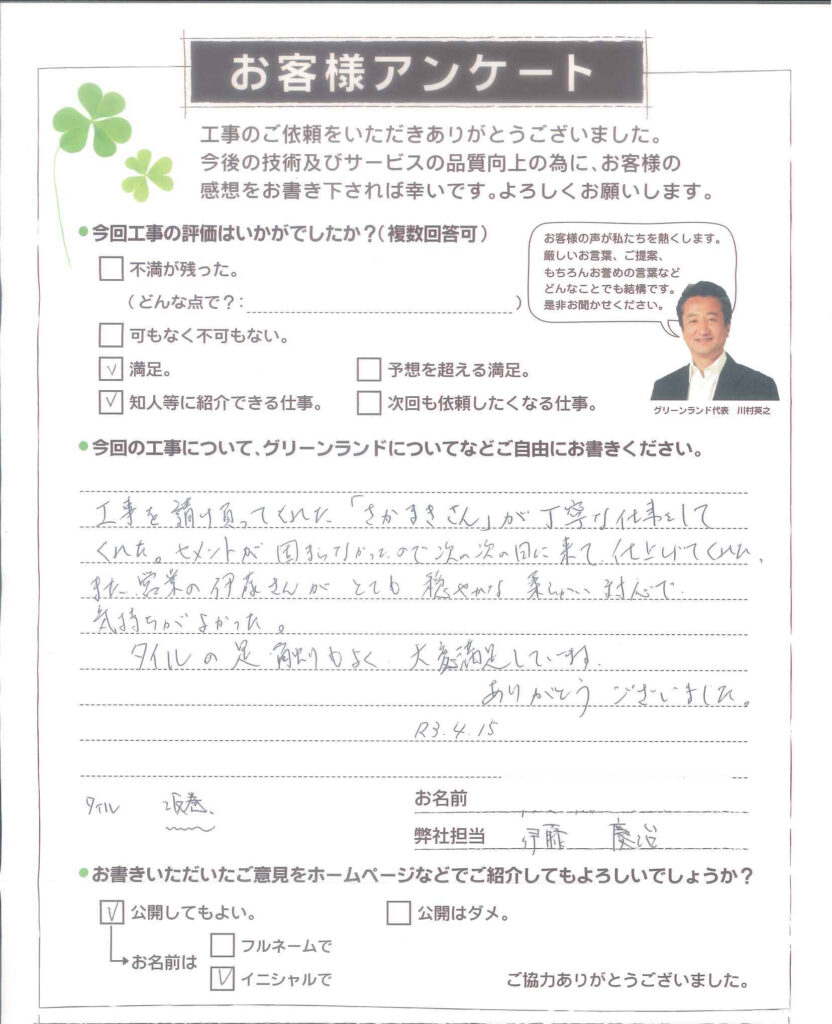 お客様アンケート
工事のご依頼をいただきありがとうございました。
今後の技術及びサービスの品質向上の為に、お客様の
感想をお書き下されば幸いです。よろしくお願いします。
今回工事の評価はいかがでしたか？（複数回答可）
不満が残った。
（どんな点で？：　　　　）
可もなく不可もない。
満足。
予想を超える満足。
知人等に紹介できる仕事。
次回も依頼したくなる仕事。
お客様の声が私たちを熱くします。
厳しいお言葉、ご提案、
もちろんお誉めの言葉など
どんなことでも結構です。
是非お聞かせください。
グリーンランド代表　川村英之
今回の工事について、グリーンランドについてなどご自由にお書きください。
工事を請け負ってくれた「さかまきさん」が丁寧な仕事をして
くれた。セメントが固まらなかったので次の次の日に来て、仕上げてくれた、
また営業の伊藤さんがとても穏やかな柔らかい対応で
気持ちがよかった。
タイルの足触りもよく、大変満足しています。
ありがとうございました。
R3.4.15
タイル　坂巻
お名前
弊社担当　伊藤　慶治
お書きいただいたご意見をホームページなどでご紹介してもよろしいでしょうか？
公開してもよい。
公開はダメ。
お名前は
フルネームで
イニシャルで
ご協力ありがとうございました。